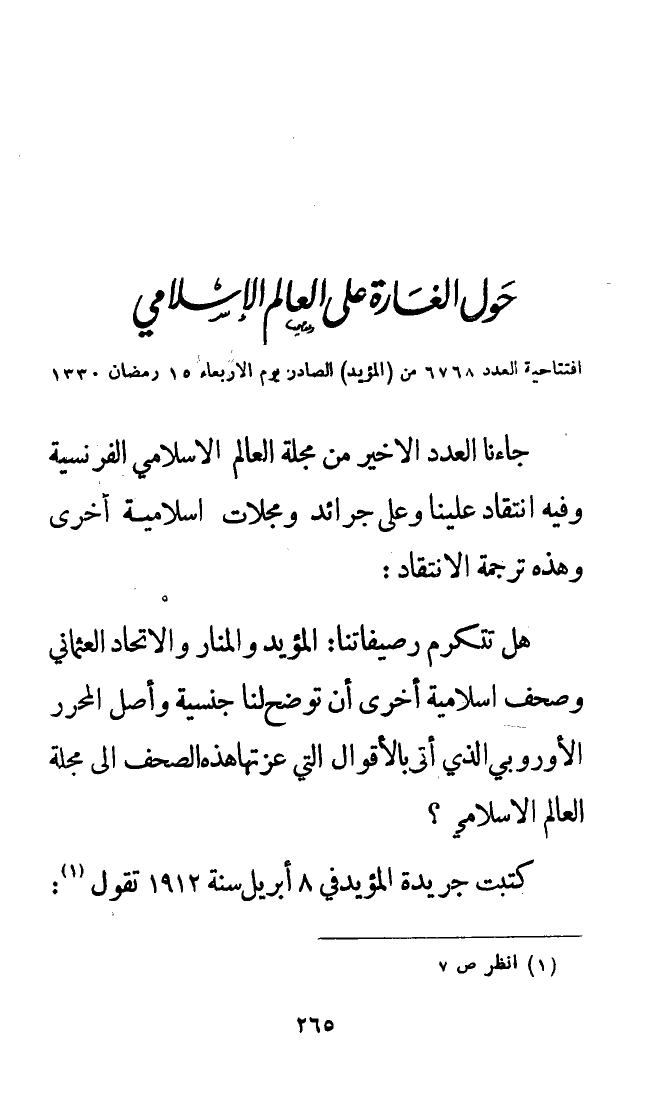 حَول الغَارة على العالم الإسلامي
افتتاحية العدد ٦٧٦٨ من (المؤيد) الصادر يوم الاربعاء ١٥ رمضان ١٣٣٠
جاءنا العدد الاخير من مجلة العالم الاسلامي الفرنسية
وفيه انتقاد علينا وعلى جرائد ومجلات اسلامية أخرى
وهذه ترجمة الانتقاد :
هل تتكرم رصيفاتنا: المؤيد والمنار والاتحاد العثماني
وصحف اسلامية أخرى أن توضح لنا جنسية وأصل المحرر
الأوروبي الذي أتى بالأقوال التي عزتها هذه الصحف الى مجلة
العالم الاسلامي ؟
كتبت جريدة المؤيد في ٨ أبريل سنة ١٩١٢ تقول (١):
(١) انظر ص ٧
٢٦٥